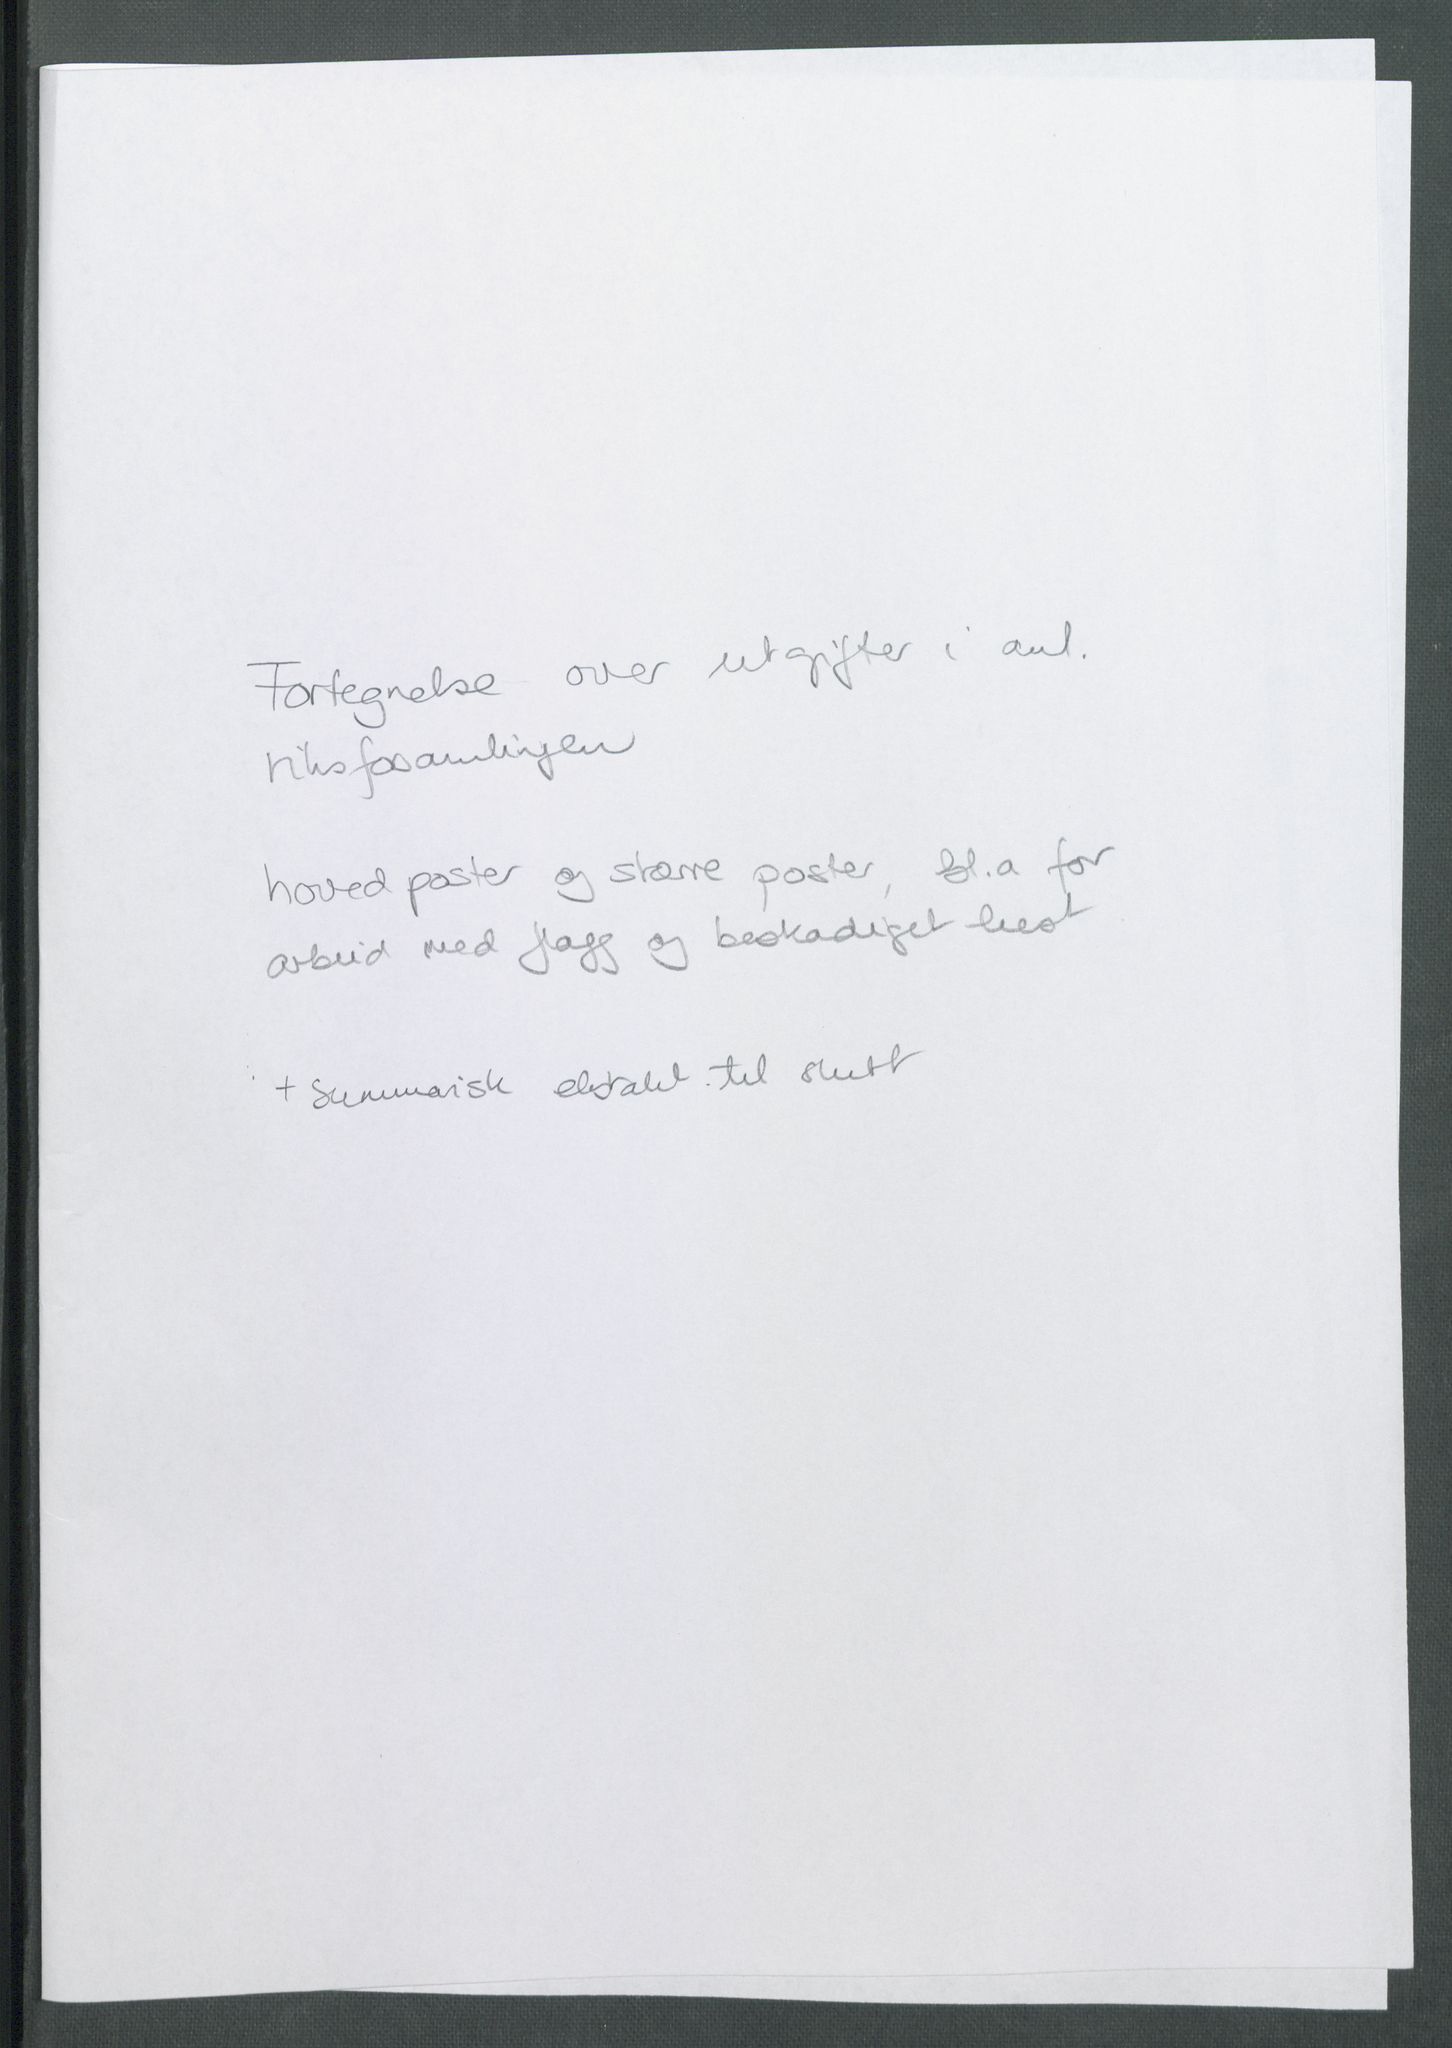 Fortegnelse over utgifter i anl.
riksforsamlingen
hovedposter og større poster, bl.a for
arbeid med flagg og beskadiget hest
+ Summarisk ekstrakt til slutt